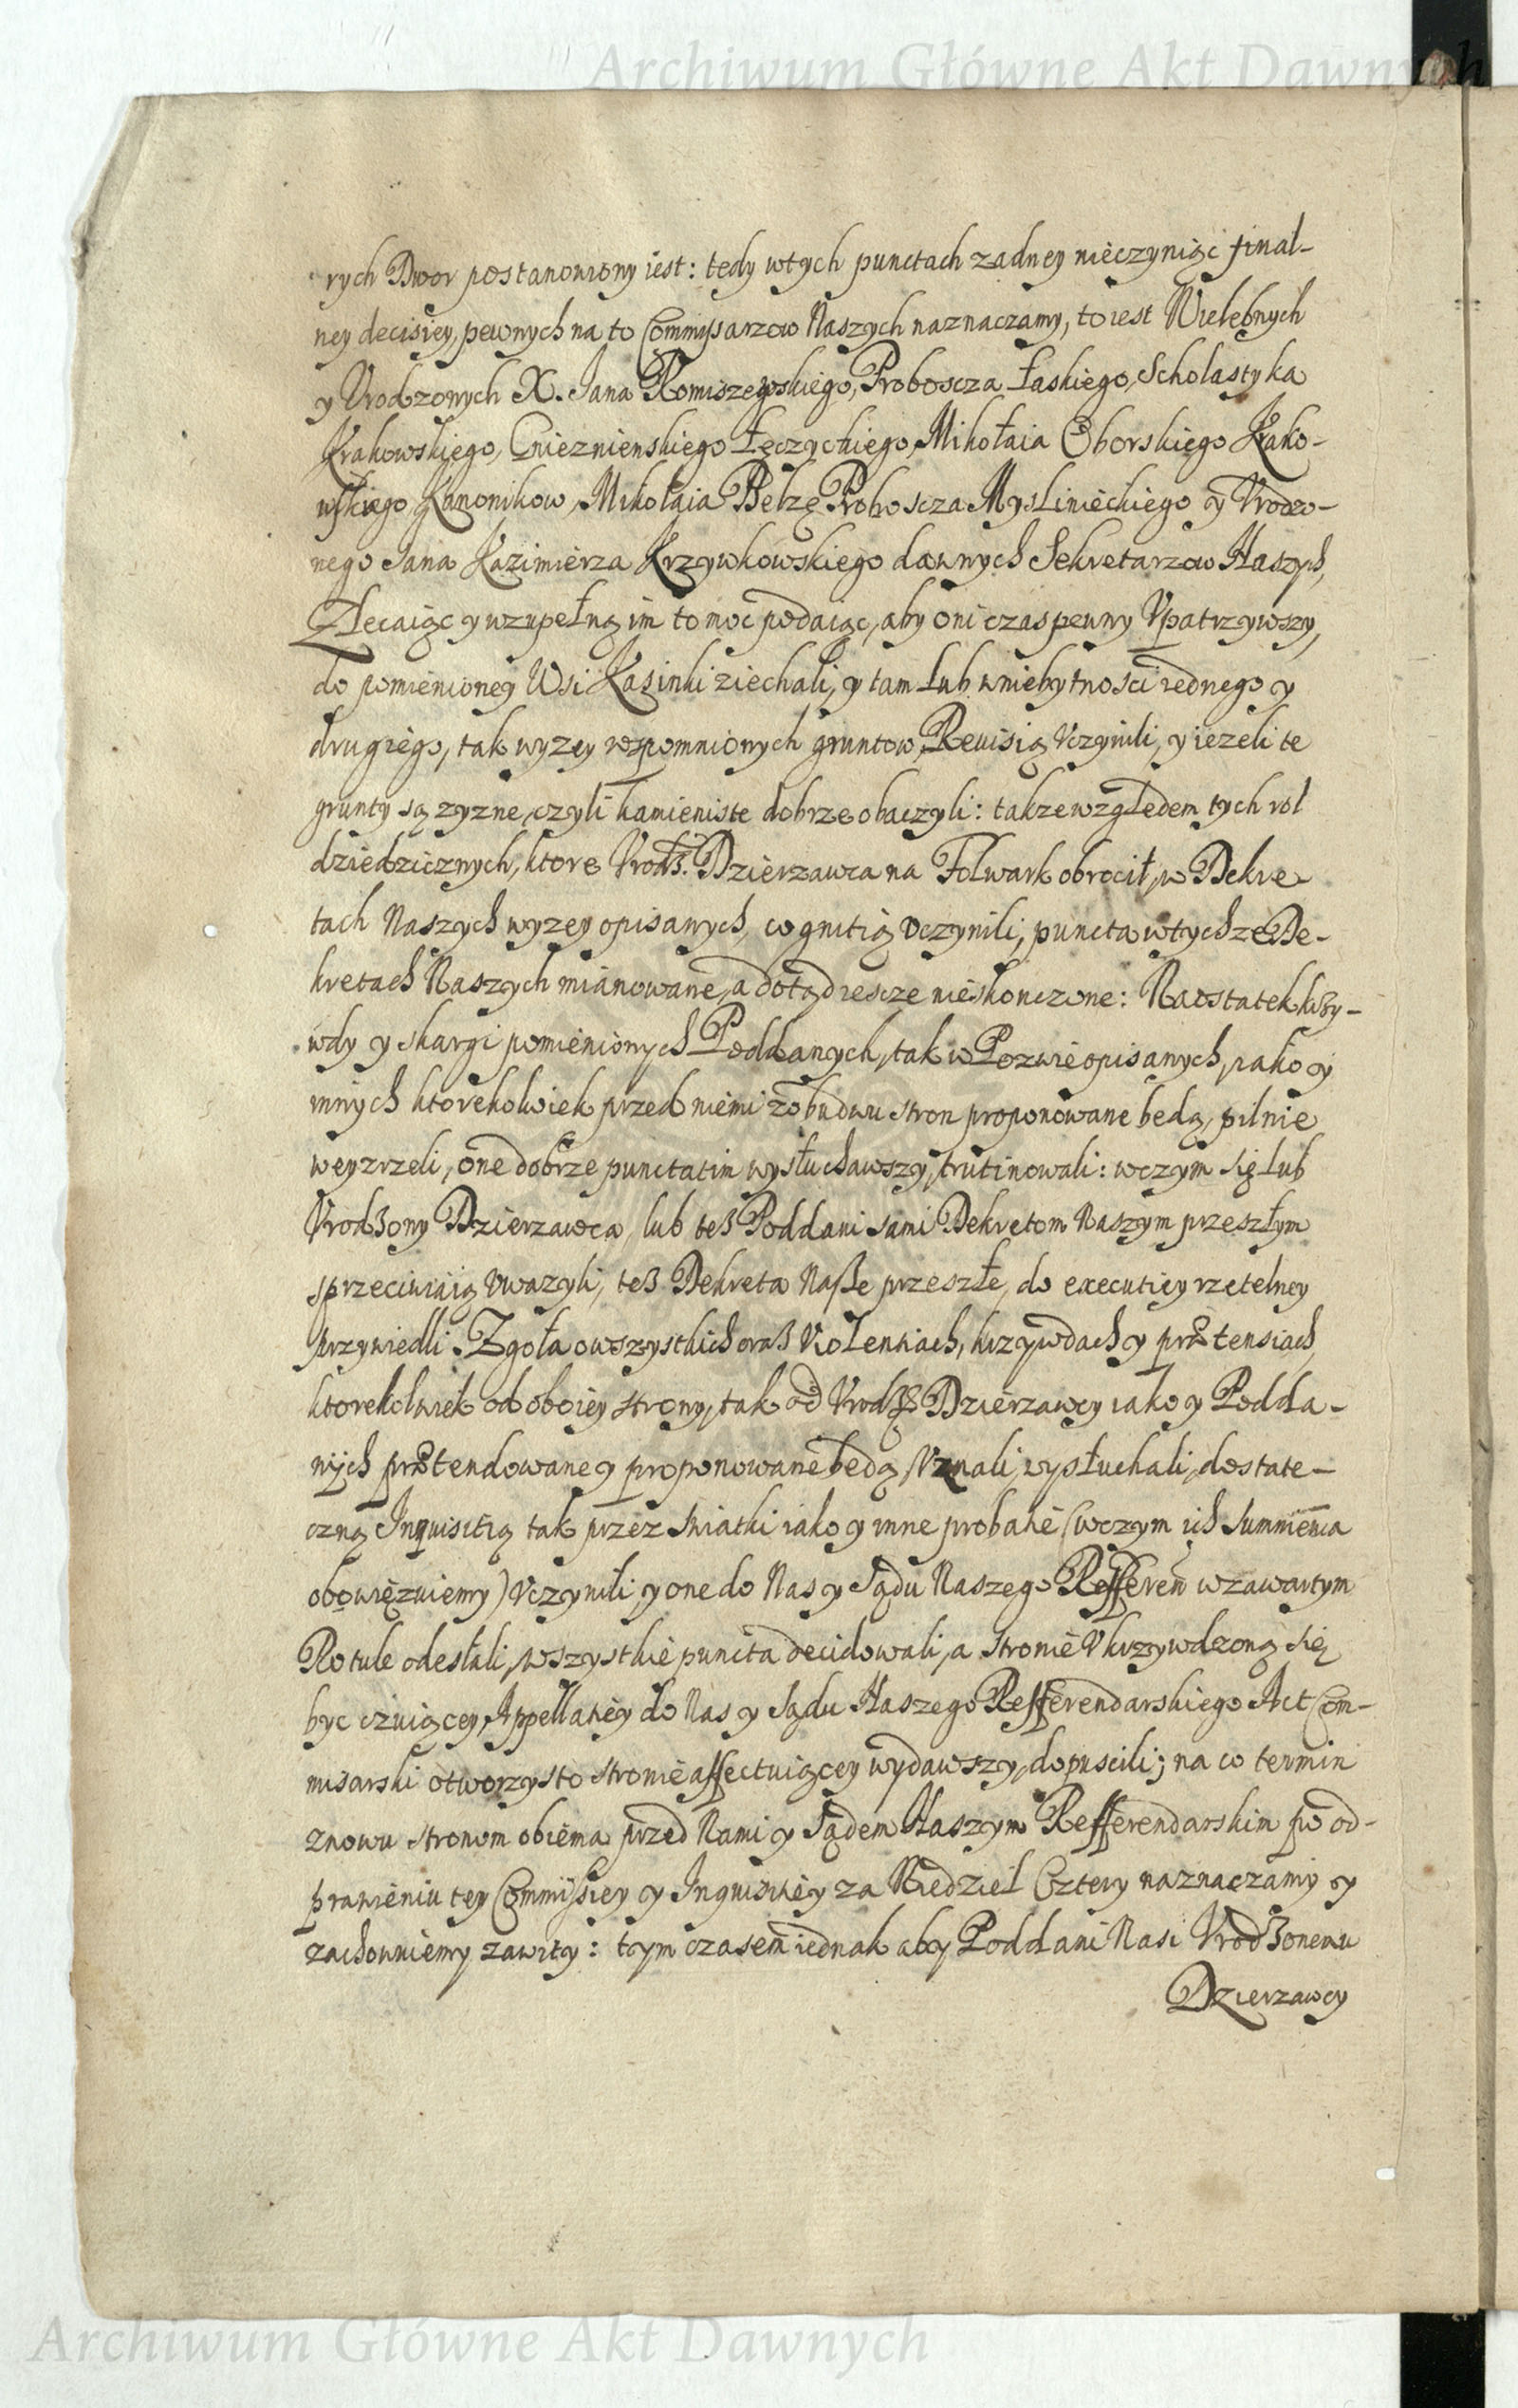 Archiwum Główne Akt Dawnych
rych Dwor postanowiony iest: tedy wtych punctach zadney nieczyniąc final-
ney decisiey, pewnych na to Commissarzow Naszych naznaczamy, to iest Wielebnych
y Vrodzonych X. Jana Romiszewskiego, Proboscza Łaskiego, Scholastyka
Krakowskiego, Gnieznienskiego Łęczyckiego, Mikołaia Oborskiego Krako-
wskiego Kanonikow, Mikołaia Bełzę Proboscza Myslimieckiego y Vrodzo-
nego Jana Kazimierza Krzywkowskiego dawnych Sekretarzow Naszych,
Zlecaiąc y wzupełną im to moc podaiąc, aby oni czas pewny Vpatrzywszy,
do pomienioney Wsi Kasinki ziechali, y tam lub wniebytnosci iednego y
drugiego, tak wyzey wspomnionych gruntow Reuisią Vczynili, y iezeli te
grunty są zyzne, czyli kamieniste dobrze obaczyli: takze względem tych rol
dziedzicznych, ktore Vrodz. Dzierzawca na Folwark obrocił, w Dekre-
tach Naszych wyzey opisanych, cognitią vczynili; puncta wtychze De-
kretach Naszych mianowane, a dotąd iescze nieskonczone: Naostatek krzy-
wdy y skargi pomienionych Poddanych, tak w Pozwie opisanych, iako y
innych ktorekolwiek przed niemi zobudwu stron proponowane będą, pilnie
weyzrzeli, one dobrze punctatim wysłuchawszy, trutinowali: wczym się lub
Vrodzony Dzierzawca, lub teß Poddani sami Dekretom Naszym przeszłym
sprzeciwiaią vwazyli, teß Dekreta Naße przeszłe, do executiey rzetelney
przywiedli. Zgoła owszystkich oraß Violentiach, krzywdach y prætensiach,
ktorekolwiek od oboiey strony, tak od Vrodz. Dzierzawcy iako y Podda-
nych prætendowane y proponowane będą, Vznali, wysłuchali, dostate-
czną Inquisitią tak przez swiatki iako y inne probatie (wczym ich summienia
obowięzuiemy) Vczynili, y one do Nas y Sądu Naszego Refferen wzawartym
Rotule odesłali, wszystkie puncta decidowali, a stronie Vkrzywdzoną się
byc czuiącey, Appellatiey do Nas y Sądu Naszego Refferendarskiego Act Com-
misarski otworzysto stronie affectuiącey wydawszy, dopuscili; na co termin
znowu stronom obiema przed Nami y Sądem Naszym Refferendarskim po od-
prawieniu tey Commissiey y Inquisitiey za Niedziel Cztery naznaczamy y
zachowuiemy zawity: tym czasem iednak aby Poddani Nasi Vrodzonemu
Dzierzawcy
Archiwum Główne Akt Dawnych